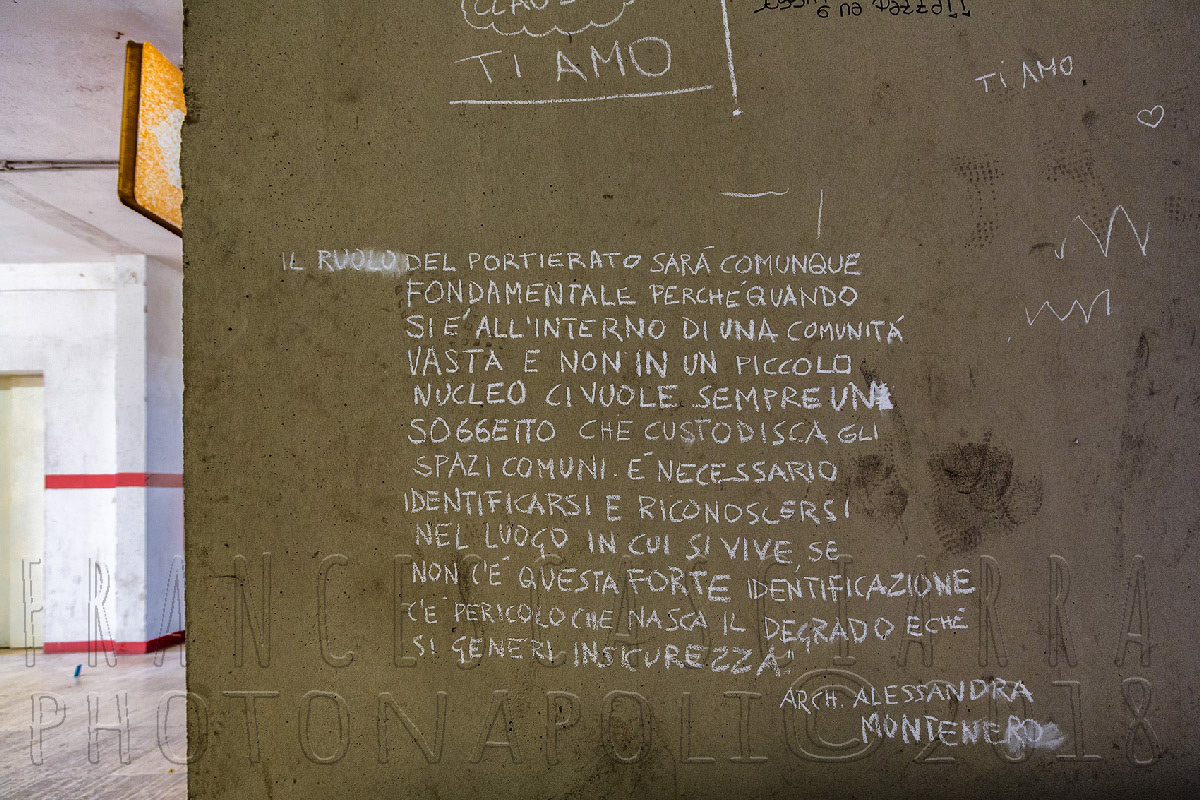 TI AMO
TI AMO
IL RUOLO DEL PORTIERATO SARÁ COMUNQUE
FONDAMENTALE PERCHÉ QUANDO
SI É ALL'INTERNO DI UNA COMUNITÁ
VASTA E NON IN UN PICCOLO
NUCLEO CI VUOLE SEMPRE UN
SOGGETTO CHE CUSTODISCA GLI
SPAZI COMUNI. É NECESSARIO
IDENTIFICARSI E RICONOSCERSI
NEL LUOGO IN CUI SI VIVE, SE
NON C'É QUESTA FORTE IDENTIFICAZIONE
C'É PERICOLO CHE NASCA IL DEGRADO E CHÉ
SI GENERI INSICUREZZA"
ARCH. ALESSANDRA
MONTENERO
FRANCESCA SCIARRA
PHOTONAPOLI © 2018